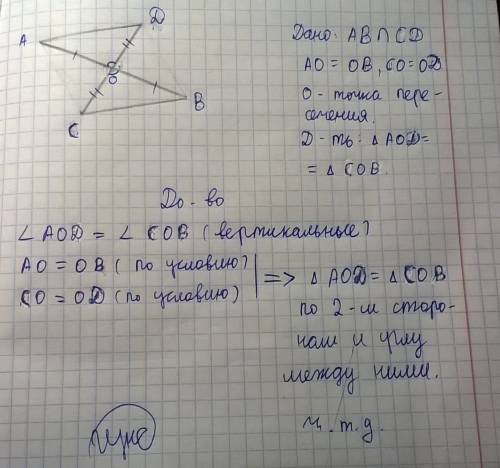 A
D
O
B
C
Дано: AB∩CD
AO = OB, CO = OD
O - точка пере-
сечения.
Д-ть: △AOD=
= △COB.
До-во
∠AOD = ∠COB (вертикальные)
AO = OB (по условию)
CO = OD (по условию)
=> △AOD = △COB
по 2-м сторо-
нам и углу
между ними.
ч.т.д.